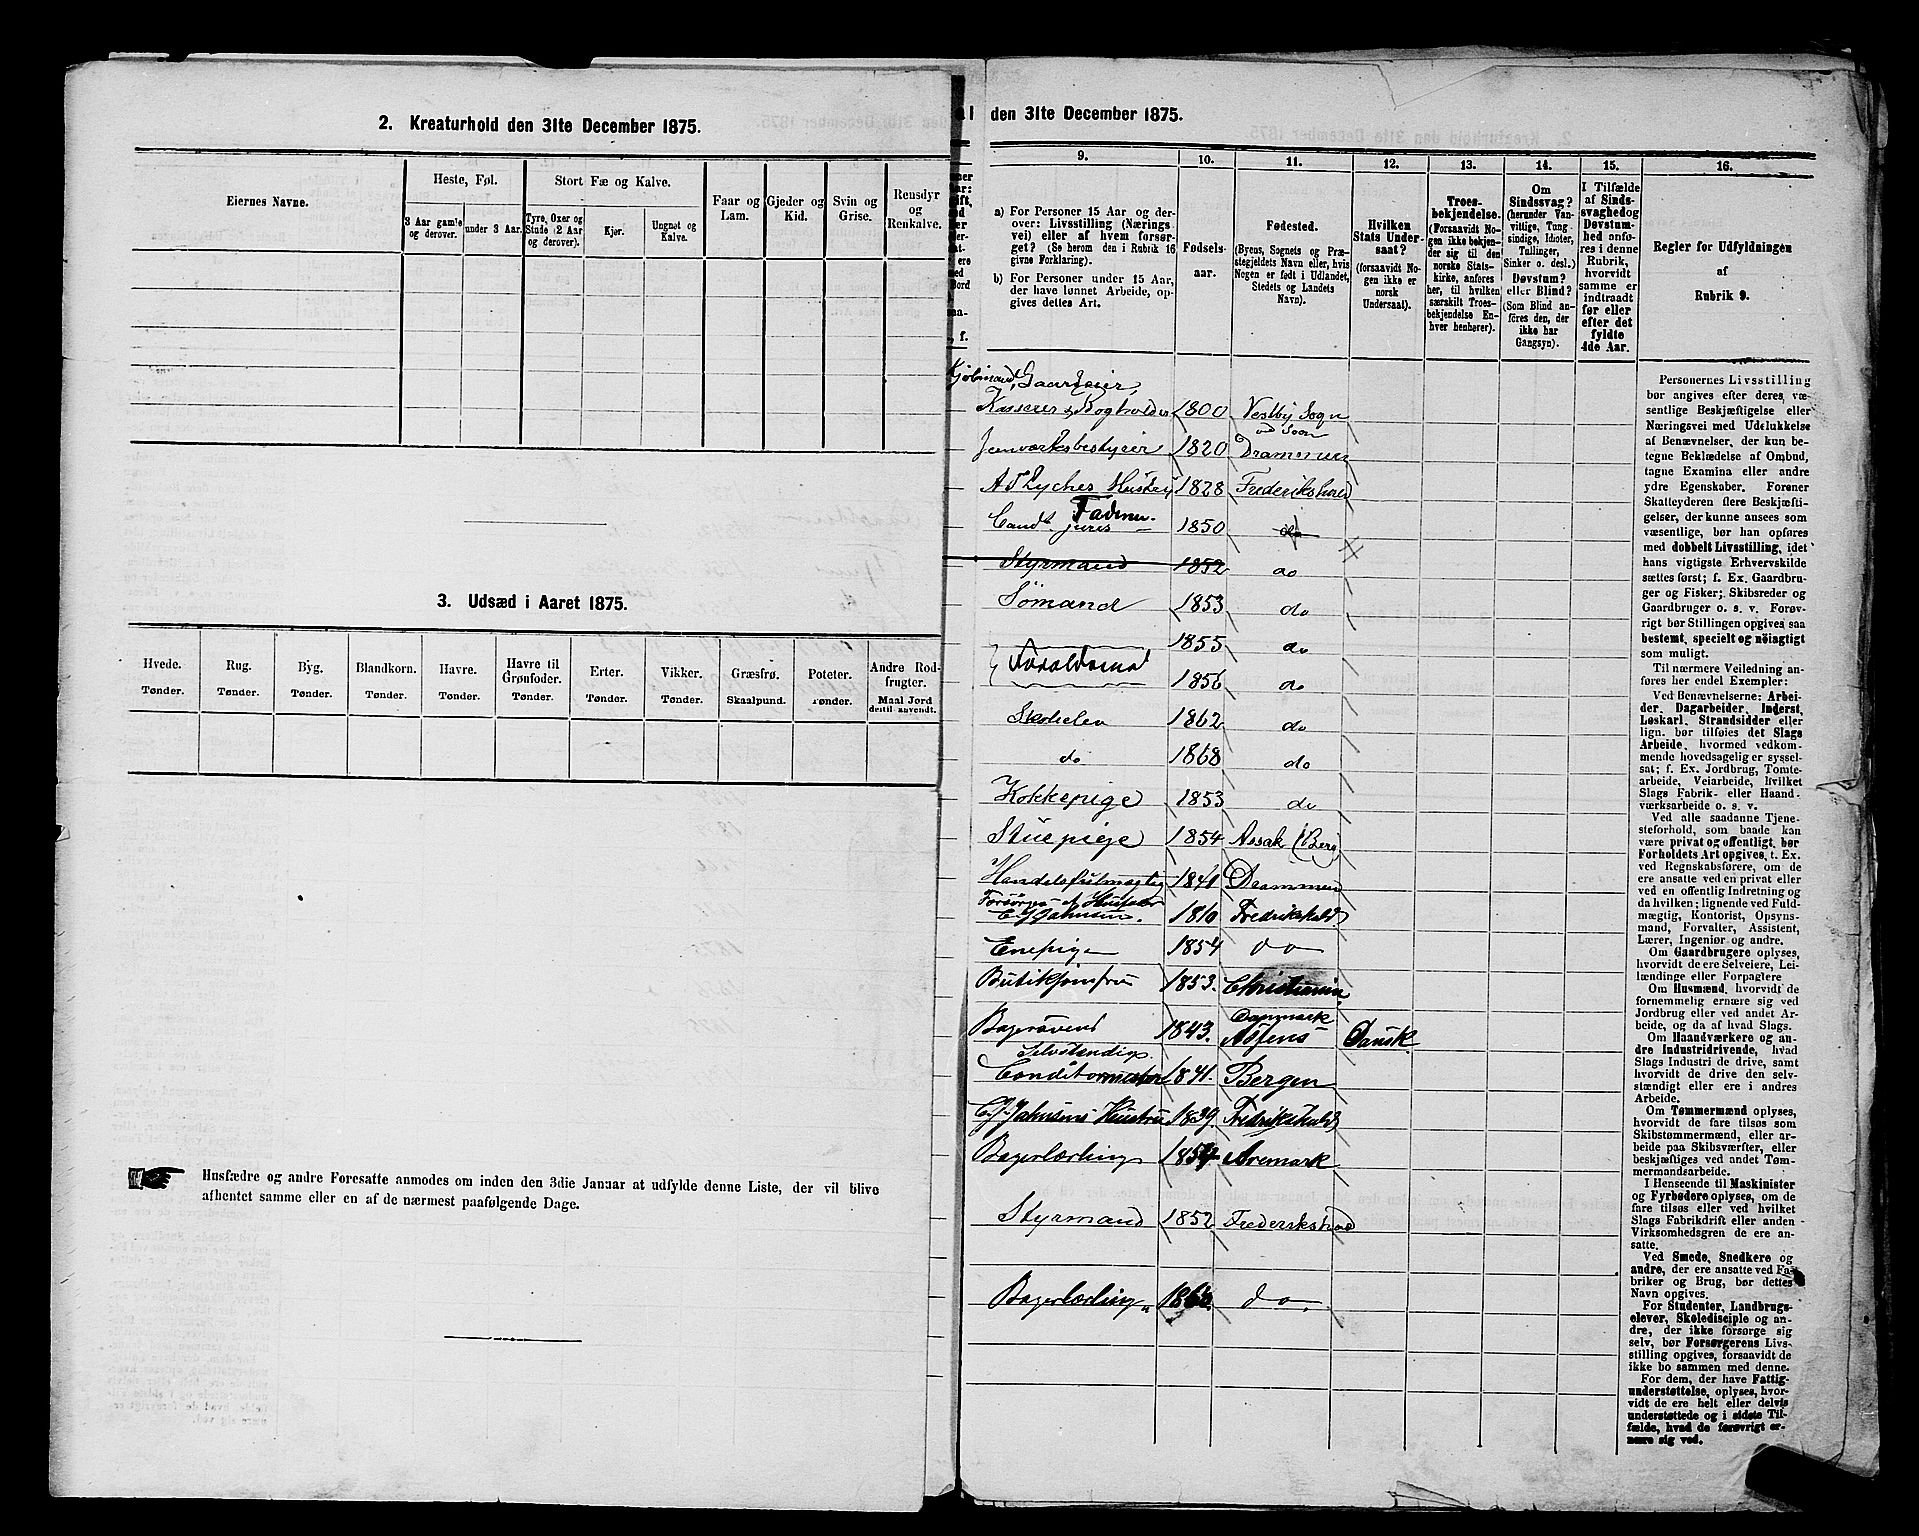 2. Kreaturhold den 31te December 1875.
Eiernes Navne.
Heste, Føl.
Stort Fæ og Kalve.
Faar og Lam.
Gjeder og Kid.
Svin og Grise.
Rensdyr og Renkalve.
3 Aar gamle og derover.
under 3 Aar.
Tyre, Oxer og Stude (2 Aar og derover).
Kjør.
Ungnøt og Kalve.
3. Udsæd i Aaret 1875.
Hvede. Rug. Byg. Blandkorn. Havre. Havre til Grønfoder. Erter. Vikker. Græsfrø. Poteter. Andre Rodfrugter.
Tønder. Tønder. Tønder. Tønder. Tønder. Tønder. Tønder. Tønder. Skaalpund. Tønder. Maal Jord dertil anvendt.
Husfædre og andre Foresatte anmodes om inden den 3die Januar at udfylde denne Liste, der vil blive
afhentet samme eller en af de nærmest paafølgende Dage.
den 31te December 1875.
9. 10. 11. 12. 13. 14. 15. 16.
a) For Personer 15 Aar og derover: Livsstilling (Næringsvei) eller af hvem forsørget? (Se herom den i Rubrik 16 givne Forklaring).
b) For Personer under 15 Aar, der have lønnet Arbeide, opgives dettes Art.
Fødselsaar.
Fødested.
(Byens, Sognets og Præstegjeldets Navn eller, hvis Nogen er født i Udlandet, Stedets og Landets Navn).
Hvilken Stats Undersaat?
(forsaavidt Nogen ikke er norsk Undersaat).
Troesbekjendelse.
(Forsaavidt Nogen ikke bekjender sig til den norske Statskirke, anføres her, til hvilken særskilt Troesbekjendelse Enhver henhører).
Om Sindssvag?
(herunder Vanvittige, Tungsindige, Idioter, Tullinger, Sinker o. desl.)
Døvstum? eller Blind?
(Som Blind anføres den, der ikke har Gangsyn).
I Tilfælde af Sindssvaghed og Døvstumhed anføres i denne Rubrik, hvorvidt samme er indtraadt før eller efter det fyldte 4de Aar.
Regler for Udfyldningen
af
Rubrik 9.
Kjøbmand, Gaardeier,
Kasserer & Bogholder 1800 Vestby Sogn
ved Soon
Jernværksbestyrer 1820 Drammen
1828 Frederikshald
Candt juris 1850 do
Styrmand 1852 do
Sømand 1853 do
1855 do
1856 do
Skoleelev 1862 do
do 1868 do
Kokkepige 1853 do
Stuepige 1854 Assak (Berg)
Handelsfuldmægtig 1841 Drammen
Forsørges af Husfader
C. J. Jahnsen. 1810 Fredrikshald
Enepige 1854 do
Butikjomfru 1853. Christiania
Danmark
Bagersvend 1843. Assens Dansk
Selvstændig
Conditormester 1841. Bergen
C. J. Jahnsens Hustru 1839. Fredrikshald
Bagerlærling 1857 Aremark
Styrmand 1852 Frederikshald
Bagerlærling 1860 do.
Personernes Livsstilling
bør angives efter deres væ-
sentlige Beskjæftigelse eller
Næringsvei med Udelukkelse
af Benævnelser, der kun be-
tegne Beklædelse af Ombud,
tagne Examina eller andre
ydre Egenskaber. Forener
Skatteyderen flere Beskjæfti-
gelser, der kunne ansees som
væsentlige, bør han opføres
med dobbelt Livsstilling, idet
hans vigtigste Erhvervskilde
sættes først; f. Ex. Gaardbru-
ger og Fisker; Skibsreder og
Gaardbruger o. s. v. Forøv-
rigt bør Stillingen opgives saa
bestemt, specielt og nöiagtigt
som muligt.
Til nærmere Veiledning an-
føres her endel Exempler:
Ved Benævnelserne: Arbei-
der, Dagarbeider, Inderst,
Løskarl, Strandsidder eller
lign. bør tilføies det Slags
Arbeide, hvormed vedkom-
mende hovedsagelig er syssel-
sat; f. Ex. Jordbrug, Tomte-
arbeide, Veiarbeide, hvilket
Slags Fabrik- eller Haand-
værksarbeide o. s. v.
Ved alle saadanne Tjene-
steforhold, som baade kan
være privat og offentligt, bør
Forholdets Art opgives, t. Ex.
ved Regnskabsførere, om de
ere ansatte ved en privat eller
ved en offentlig Indretning og
da hvilken; lignende ved Fuld-
mægtig, Kontorist, Opsyns-
mand, Forvalter, Assistent,
Lærer, Ingeniør og andre.
Om Gaardbrugere oplyses,
hvorvidt de ere Selveiere, Lei-
lændinge eller Forpagtere
Om Husmænd, hvorvidt de
fornemmelig ernære sig ved
Jordbrug eller ved andet Ar-
beide, og da af hvad Slags.
Om Haandværkere og an-
dre Industridrivende, hvad
Slags Industri de drive, samt
hvorvidt de drive den selv-
stændigt eller ere i andres
Arbeide.
Om Tømmermænd oplyses,
hvorvidt de fare tilsøs som
Skibstømmermænd, eller ar-
beide paa Skibsværfter, eller
beskjæftiges ved andet Tøm-
mermandsarbeide.
I Henseende til Maskinister
og Fyrbødere oplyses, om de
fare tilsøs eller ved hvilket
Slags Fabrikdrift eller anden
Virksomhedsgren de ere an-
satte.
Ved Smede, Snedkere og
andre, der ere ansatte ved Fa-
briker og Brug, bør dettes
Navn opgives.
For Studenter, Landbrugs-
elever, Skoledisciple og an-
dre, der ikke forsørge sig
selv, bør Forsørgerens Livs-
stilling opgives, forsaavidt de
ikke bo sammen med denne.
For dem, der have Fattig-
understøttelse, oplyses, hvor-
vidt de ere helt eller delvis
understøttede og i sidste Til-
fælde, hvad de forøvrigt er-
nære sig ved.